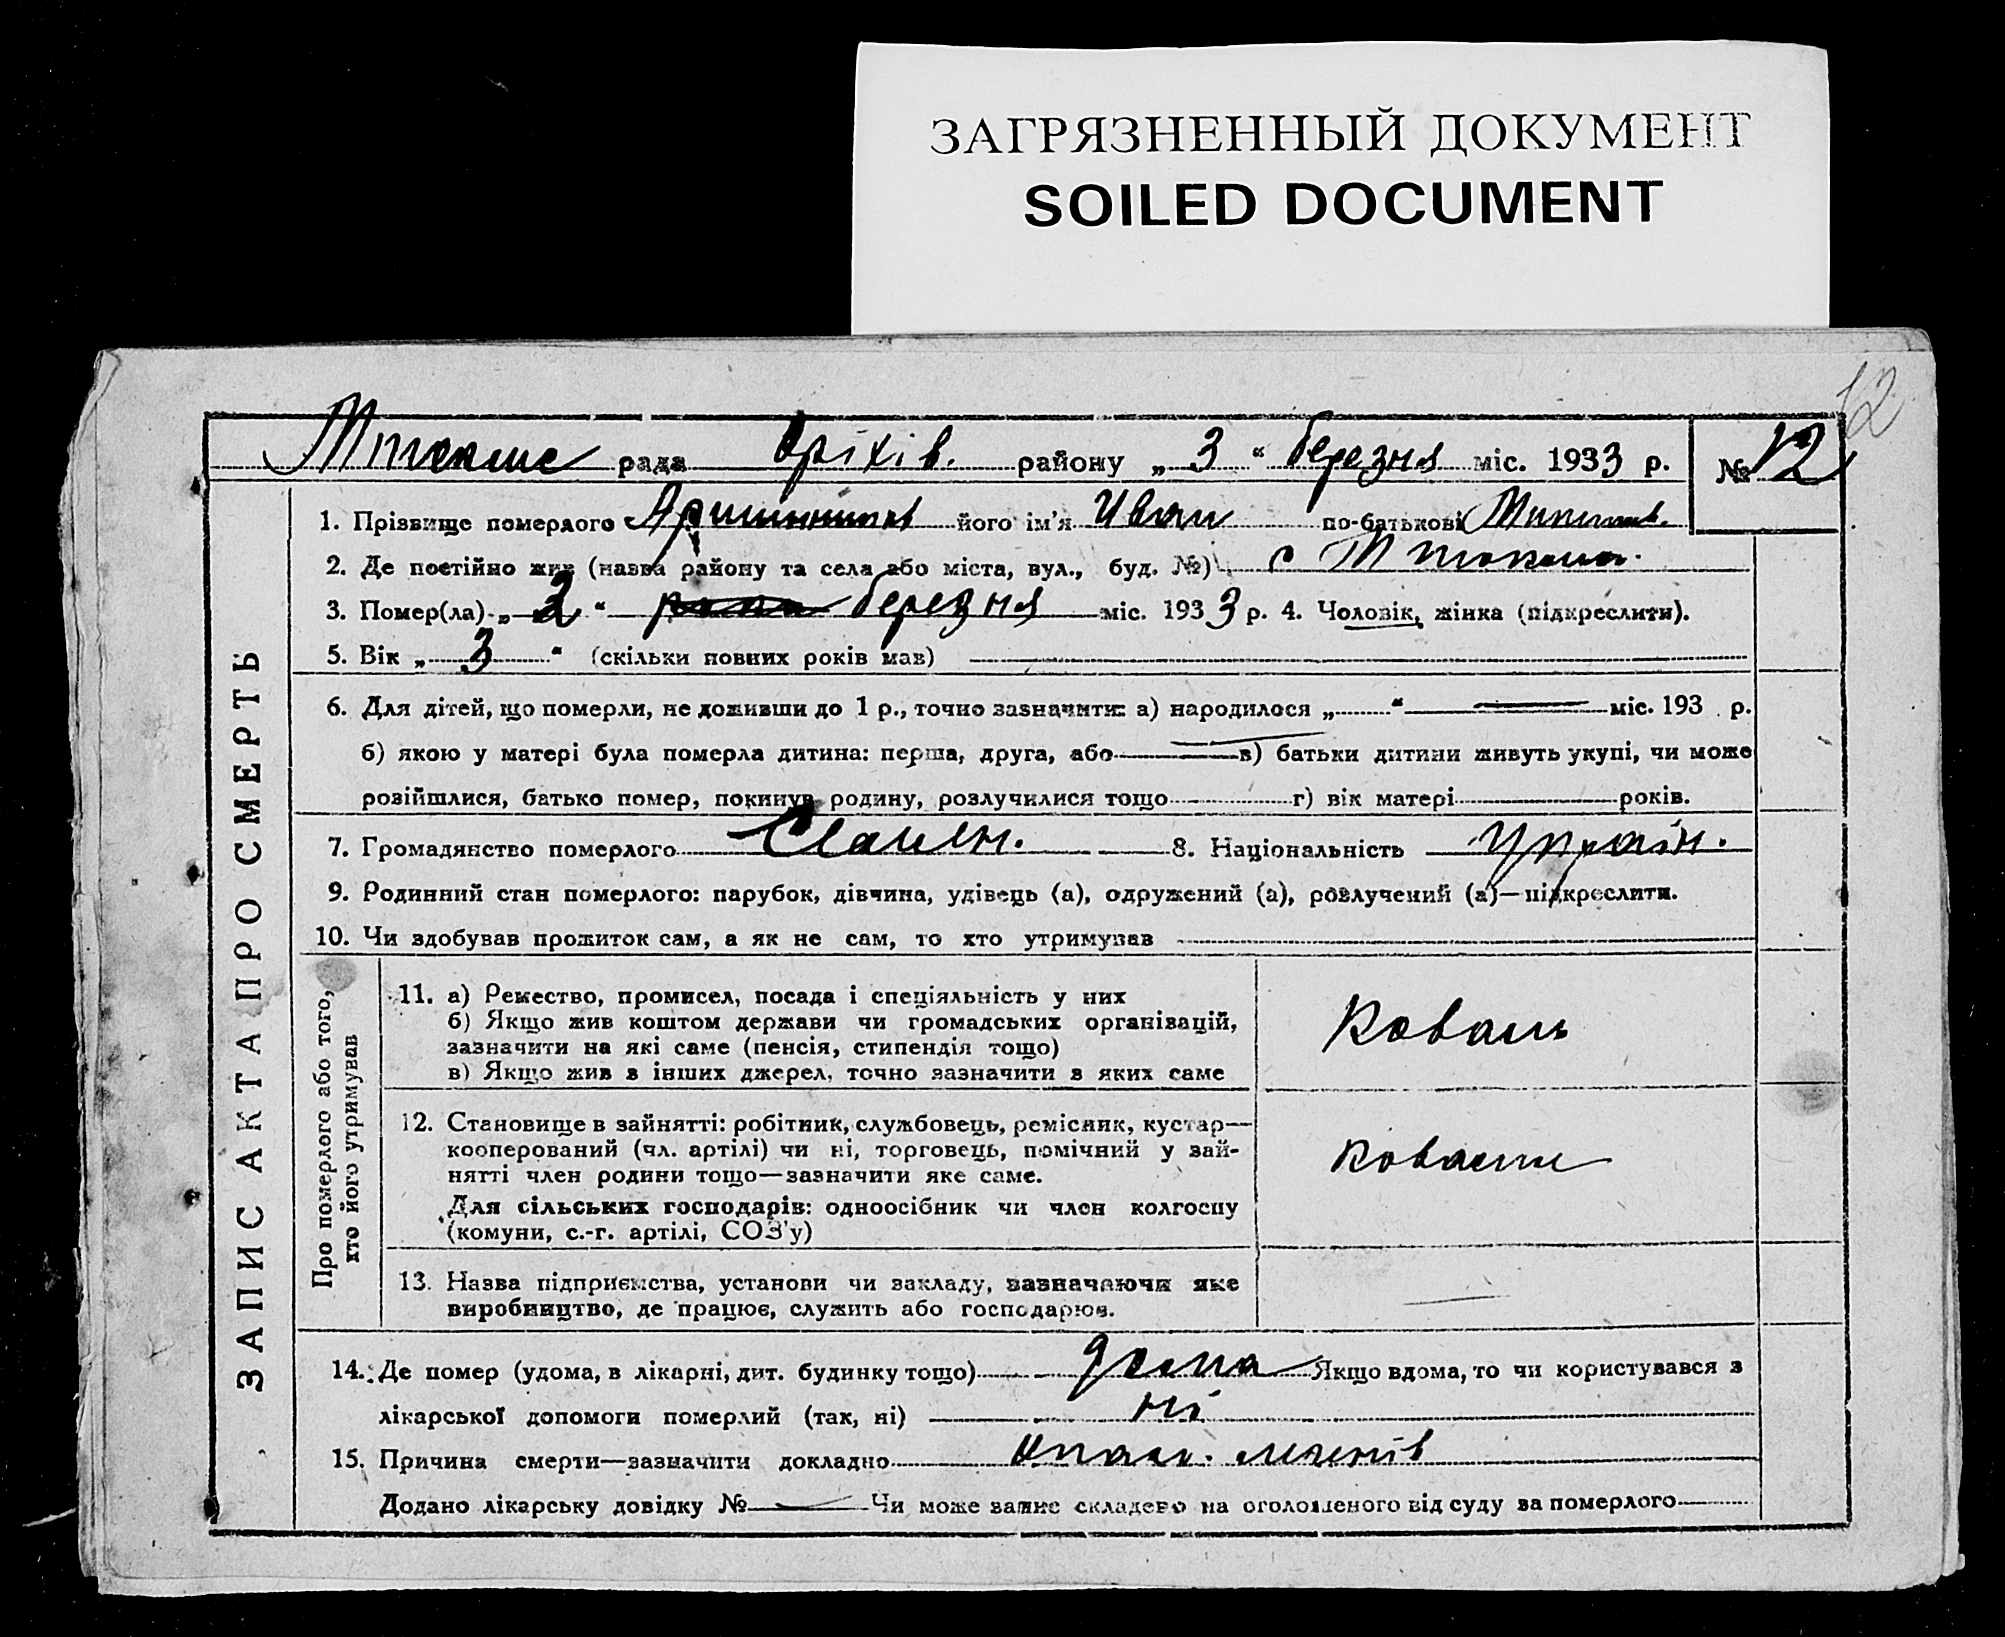 ЗАГРЯЗНЕННЫЙ ДОКУМЕНТ
SOILED DOCUMENT
12
рада Оріхів. району „ 3 “ березня міс. 1933 р. № 12
ЗАПИС АКТА ПРО СМЕРТЬ
1. Прізвище померлого його ім'я Иван по-батькові
2. Де постійно жив (назва району та села або міста, вул., буд. №) с
3. Помер(ла) „ 2 “ березня міс. 1933 р. 4. Чоловік, жінка (підкреслити).
5. Вік „ 3 “ (скільки повних років мав)
6. Для дітей, що померли, не доживши до 1 р., точно зазначити: а) народилося „ “ міс. 193 р.
б) якою у матері була померла дитина: перша, друга, або в) батьки дитини живуть укупі, чи може
розійшлися, батько помер, покинув родину, розлучилися тощо г) вік матері років.
7. Громадянство померлого Селян. 8. Національність Украін.
9. Родинний стан померлого: парубок, дівчина, удівець (а), одружений (а), розлучений (а)—підкреслити.
10. Чи здобував прожиток сам, а як не сам, то хто утримував
Про померлого або того,
хто його утримував
11. а) Ремество, промисел, посада і спеціяльність у них
б) Якщо жив коштом держави чи громадських організацій,
зазначити на які саме (пенсія, стипендія тощо)
в) Якщо жив з інших джерел, точно зазначити з яких саме
Коваль
12. Становище в зайнятті: робітник, службовець, ремісник, кустар—
кооперований (чл. артілі) чи ні, торговець, помічний у зай-
нятті член родини тощо—зазначити яке саме.
Для сільських господарів: одноосібник чи член колгоспу
(комуни, с.-г. артілі, СОЗ'у)
13. Назва підприємства, установи чи закладу, зазначаючи яке
виробництво, де працює, служить або господарює.
14. Де помер (удома, в лікарні, дит. будинку тощо) дома Якщо вдома, то чи користувався з
лікарської допомоги померлий (так, ні) ні
15. Причина смерти—зазначити докладно Упал. легенів
Додано лікарську довідку № Чи може запис складено на оголошеного від суду за померлого